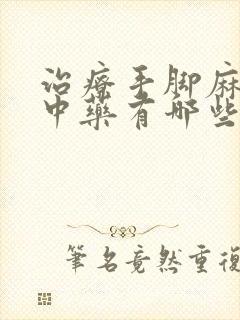 治療手脚麻
中藥有哪些
筆名竟然重復